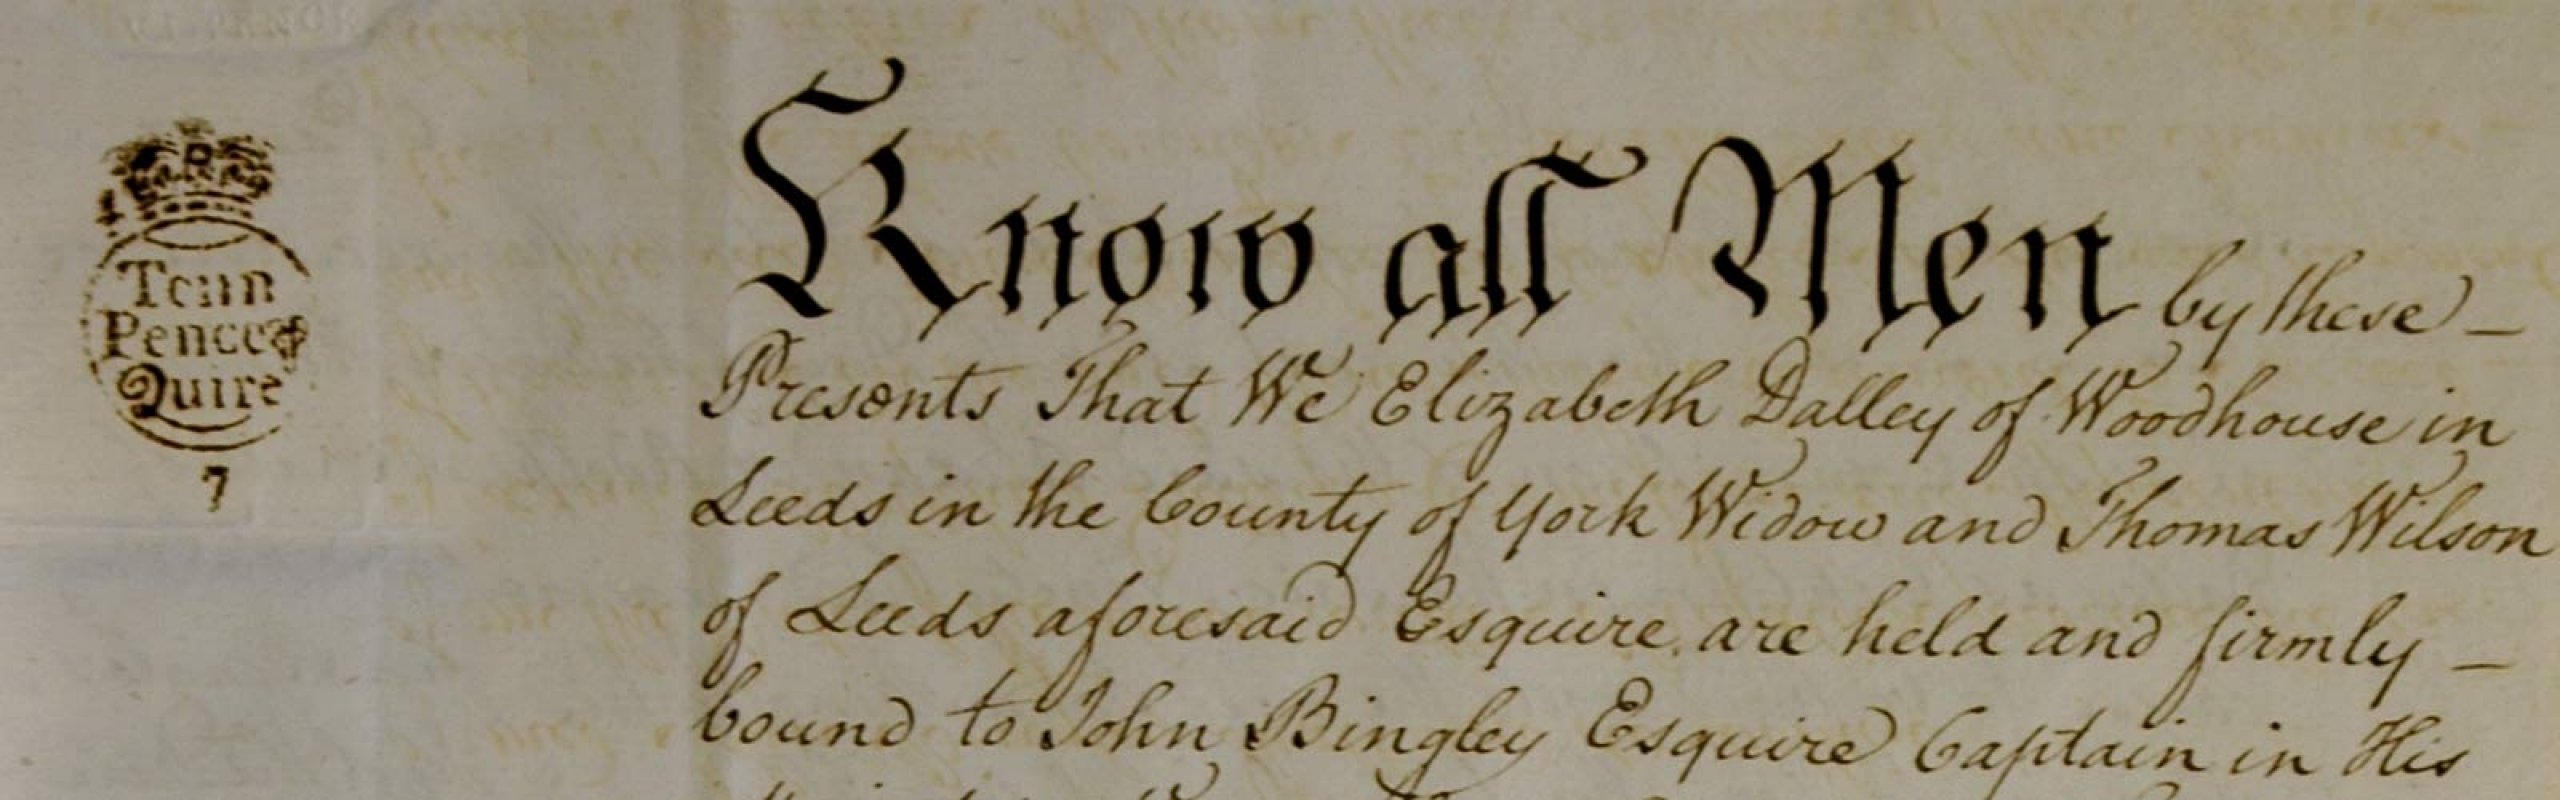 Tenn
Pence ⅌
Quire
7
Know all Men by these –
Presents That We Elizabeth Dalley of Woodhouse in
Leeds in the County of York Widow and Thomas Wilson
of Leeds aforesaid Esquire are held and firmly –
bound to John Bingley Esquire Captain in His